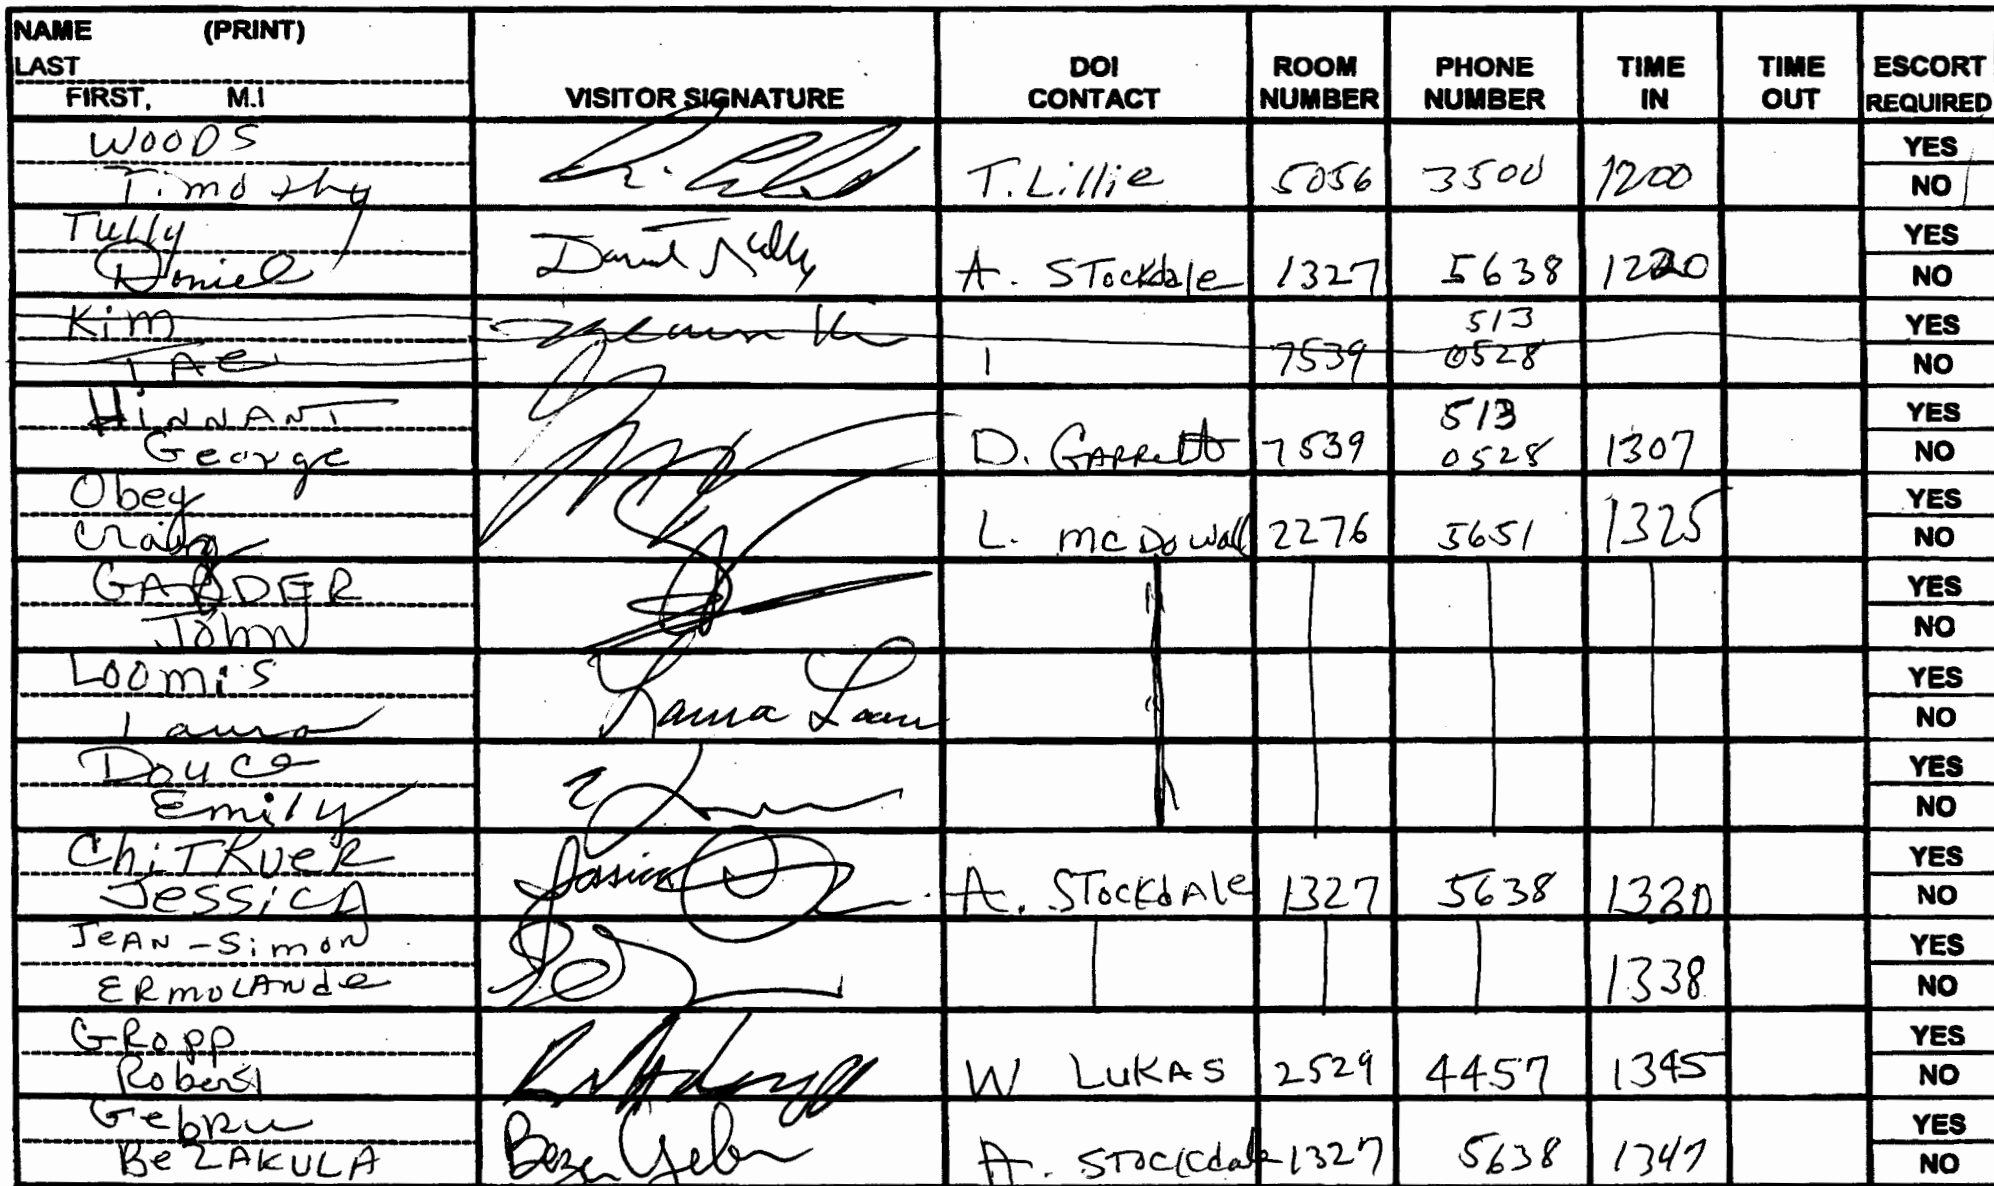 NAME (PRINT)
LAST
FIRST, M.I
VISITOR SIGNATURE
DOI CONTACT
ROOM NUMBER
PHONE NUMBER
TIME IN
TIME OUT
ESCORT REQUIRED
WOODS
Timothy
T. Lillie 5056 3500 1200
YES
NO
Tully
Daniel
A. STockdale 1327 5638 1220
YES
NO
Kim
TAE
7539 513 0528
YES
NO
HINNANT
George
D. GARRett 7539 513 0528 1307
YES
NO
Obey
Craig
L. McDowall 2276 5651 1325
YES
NO
GARDER
John
YES
NO
Loomis
Laura
Laura
YES
NO
Douce
Emily
YES
NO
ChiTKUeR
Jessica
Jessica
A. STockdAle 1327 5638 1330
YES
NO
JeAN-Simon
ERmoLANde
1338
YES
NO
GRopp
Robert
W LUKAS 2529 4457 1345
YES
NO
Gebru
BeZAKULA
A. STockdale 1327 5638 1347
YES
NO